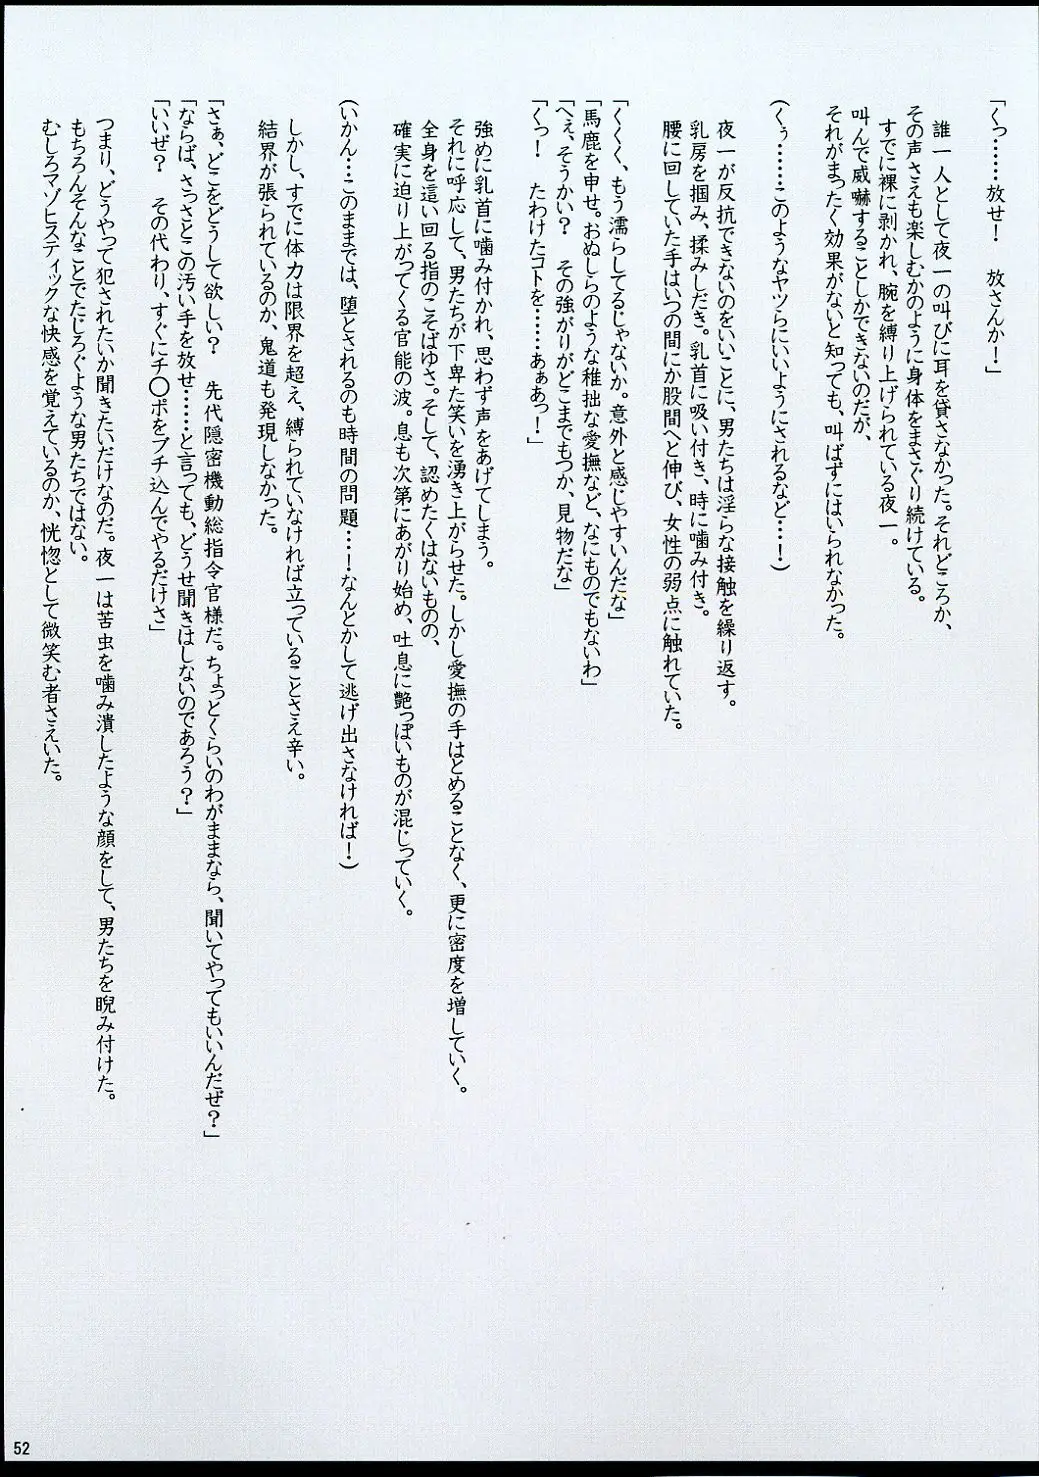 「くっ……放せ！　放さんか！」
誰一人として夜一の叫びに耳を貸さなかった。それどころか、
その声さえも楽しむかのように身体をまさぐり続けている。
すでに裸に剥かれ、腕を縛り上げられている夜一。
叫んで威嚇することしかできないのだが、
それがまったく効果がないと知っても、叫ばずにはいられなかった。
(くぅ……このようなヤツらにいいようにされるなど…！)
夜一が反抗できないのをいいことに、男たちは淫らな接触を繰り返す。
乳房を掴み、揉みしだき。乳首に吸い付き、時に噛み付き。
腰に回していた手はいつの間にか股間へと伸び、女性の弱点に触れていた。
「くくく、もう濡らしてるじゃないか。意外と感じやすいんだな」
「馬鹿を申せ。おぬしらのような稚拙な愛撫など、なにものでもないわ」
「へぇ、そうかい？　その強がりがどこまでもつか、見物だな」
「くっ！　たわけたコトを……あぁあっ！」
強めに乳首に噛み付かれ、思わず声をあげてしまう。
それに呼応して、男たちが下卑た笑いを湧き上がらせた。しかし愛撫の手はとめることなく、更に密度を増していく。
全身を這い回る指のこそばゆさ。そして、認めたくはないものの、
確実に迫り上がってくる官能の波。息も次第にあがり始め、吐息に艶っぽいものが混じっていく。
(いかん…このままでは、堕とされるのも時間の問題…！なんとかして逃げ出さなければ！)
しかし、すでに体力は限界を超え、縛られていなければ立っていることさえ辛い。
結界が張られているのか、鬼道も発現しなかった。
「さぁ、どこをどうして欲しい？　先代隠密機動総指令官様だ。ちょっとくらいのわがままなら、聞いてやってもいいんだぜ？」
「ならば、さっさとこの汚い手を放せ……と言っても、どうせ聞きはしないのであろう？」
「いいぜ？　その代わり、すぐにチ〇ポをブチ込んでやるだけさ」
つまり、どうやって犯されたいか聞きたいだけなのだ。夜一は苦虫を噛み潰したような顔をして、男たちを睨み付けた。
もちろんそんなことでたじろぐような男たちではない。
むしろマゾヒスティックな快感を覚えているのか、恍惚として微笑む者さえいた。
52